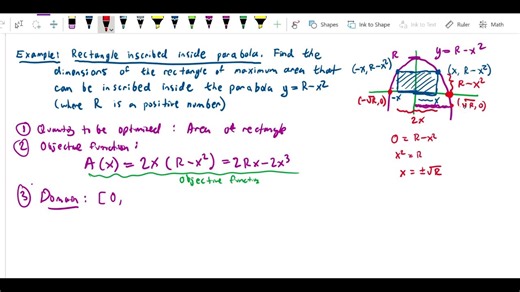 Shapes Ink to Shape Ink to Text
Example: Rectangle inscribed inside parabola. Find the
dimensions of the rectangle of maximum area that
can be inscribed inside the parabola y = R - x²
(where R is a positive number)
① Quantity to be optimized : Area of rectangle
② Objective function :
A(x) = 2x (R - x²) = 2Rx - 2x³
Objective function
③ Domain : [0,
R y = R - x²
(-x, R-x²) (x, R-x²)
R - x²
(-√R, 0) -x x (√R, 0)
2x
0 = R - x²
x² = R
x = ±√R